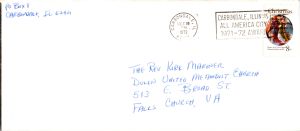 PO BOX 1
CARBONDALE, IL 62901
CARBONDALE, ILLINOIS
ALL AMERICA CITY
1971-72 AWARD
THE REV KIRK MARINER
DULIN UNITED METHODIST CHURCH
513 E. BROAD ST
FALLS CHURCH, VA